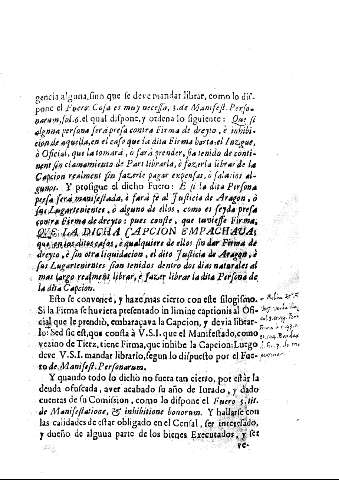 gencia alguna, sino que se deve mandar librar, como lo dis-
pone el Fuero Cosa es muy necessa, 3. de Manifest. Perso-
narum, fol. 9. el qual dispone, y ordena lo siguiente: Que si
alguna persona serà presa contra Firma de dreyto, è inhibi-
cion de aquella, en el caso que la dita Firma basta: el Iuzgue,
ò Oficial, que la tomarà, ò farà prender, sia tenido de conti-
nent sin clamamiento de Part librarla, ò fazerla librar de la
Capcion realment sin fazerle pagar expensas, ò salarios al-
gunos. Y prosigue el dicho Fuero: E si la dita Persona
presa serà manifestada, è farà fè al Justicia de Aragon, ò
sus Lugartenientes, ò alguno de ellos, como es seyda presa
contra Firma de dreyto: pues conste, que tuviesse Firma,
QUE LA DICHA CAPCION EMPACHAVA;
que en los ditos casos, è qualquiere de ellos sin dar Firma de
dreyto, è sin otra liquidacion, el dito Justicia de Aragon, è
sus Lugartenientes sian tenidos dentro dos dias naturales al
mas largo realment librar, è fazer librar la dita Persona de
la dita Capcion.
Esto se convence, y haze mas cierto con este silogismo.
Si la Firma se huviera presentado in limine captionis al Ofi-
cial que le prendiò, embaraçava la Capcion, y devia librar-
lo: Sed sic est, que consta à V.S.I. que el Manifestado, como
vezino de Tierz, tiene Firma, que inhibe la Capcion: Luego
deve V.S.I. mandarlo librar, segun lo dispuesto por el Fue-
ro de Manifest. Personarum.
Y quando todo lo dicho no fuera tan cierto, por estàr la
deuda ofuscada, aver acabado su año de Jurado, y dado
cuentas de su Comission, como lo dispone el Fuero 5. tit.
de Manifestatione, & inhibitione bonorum. Y hallarse con
las calidades de estàr obligado en el Censal, ser interesado,
y dueño de alguna parte de los bienes Executados, y ser
ve-